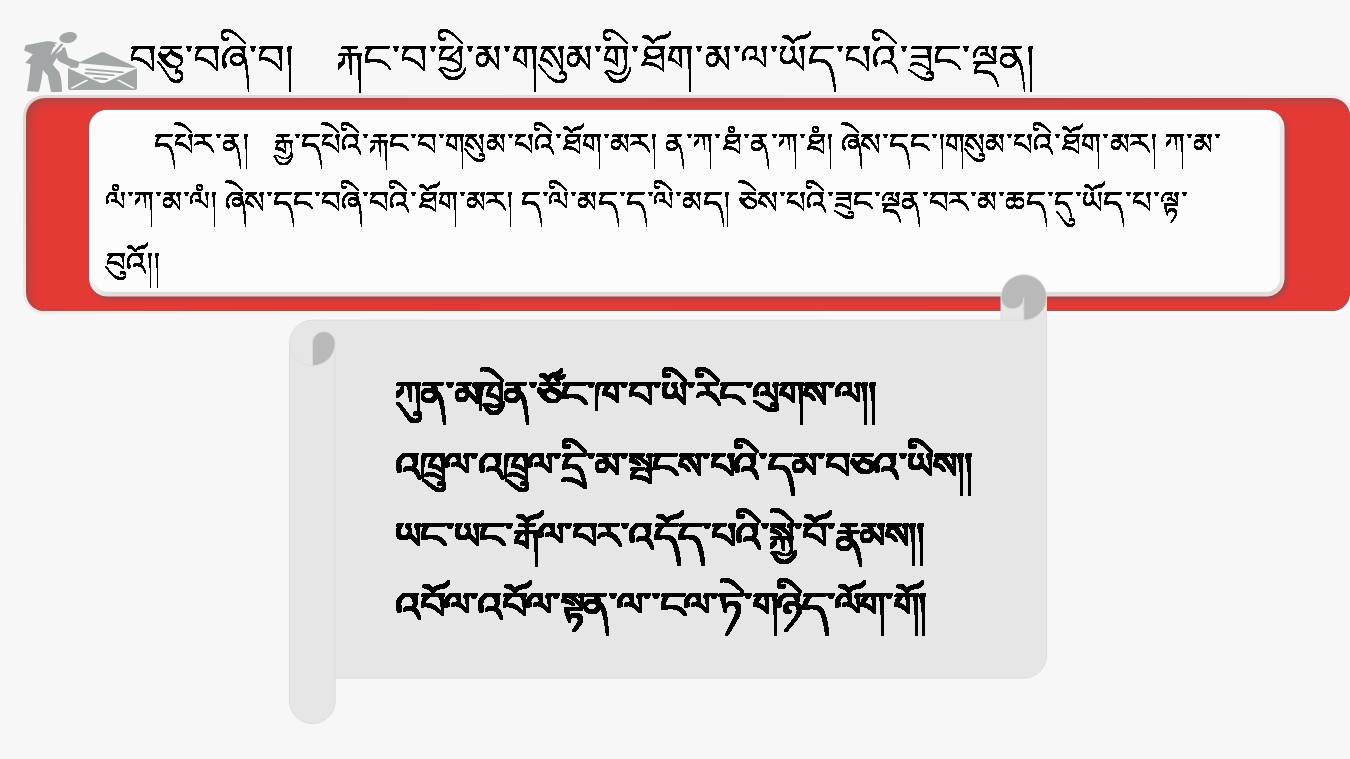 བཅུ་བཞི་བ། རྐང་བ་ཕྱི་མ་གསུམ་གྱི་ཐོག་མ་ལ་ཡོད་པའི་ཟུང་ལྡན།
དཔེར་ན། རྒྱ་དཔེའི་རྐང་བ་གསུམ་པའི་ཐོག་མར། ན་ཀ་ཐཾ་ན་ཀ་ཐཾ། ཞེས་དང་།གསུམ་པའི་ཐོག་མར། ཀ་མ་
ལཾ་ཀ་མ་ལཾ། ཞེས་དང་བཞི་བའི་ཐོག་མར། ད་ལི་མད་ད་ལི་མད། ཅེས་པའི་ཟུང་ལྡན་བར་མ་ཆད་དུ་ཡོད་པ་ལྟ་
བུའོ།།
ཀུན་མཁྱེན་ཙོང་ཁ་བ་ཡི་རིང་ལུགས་ལ།།
འཁྲུལ་འཁྲུལ་དྲི་མ་སྤངས་པའི་དམ་བཅའ་ཡིས།།
ཡང་ཡང་རྒོལ་བར་འདོད་པའི་སྐྱེ་བོ་རྣམས།།
འབོལ་འབོལ་སྟན་ལ་་ངལ་ཏེ་གཉིད་ལོག་གོ།